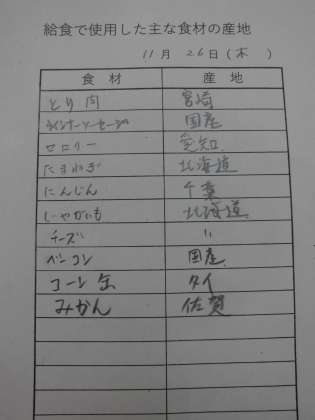 給食で使用した主な食材の産地
11月 26日(木)
食材 産地
とり肉 宮崎
ウインナーソーセージ 国産
セロリー 愛知
たまねぎ 北海道
にんじん 千葉
じゃがいも 北海道
チーズ 〃
ベーコン 国産
コーン缶 タイ
みかん 佐賀